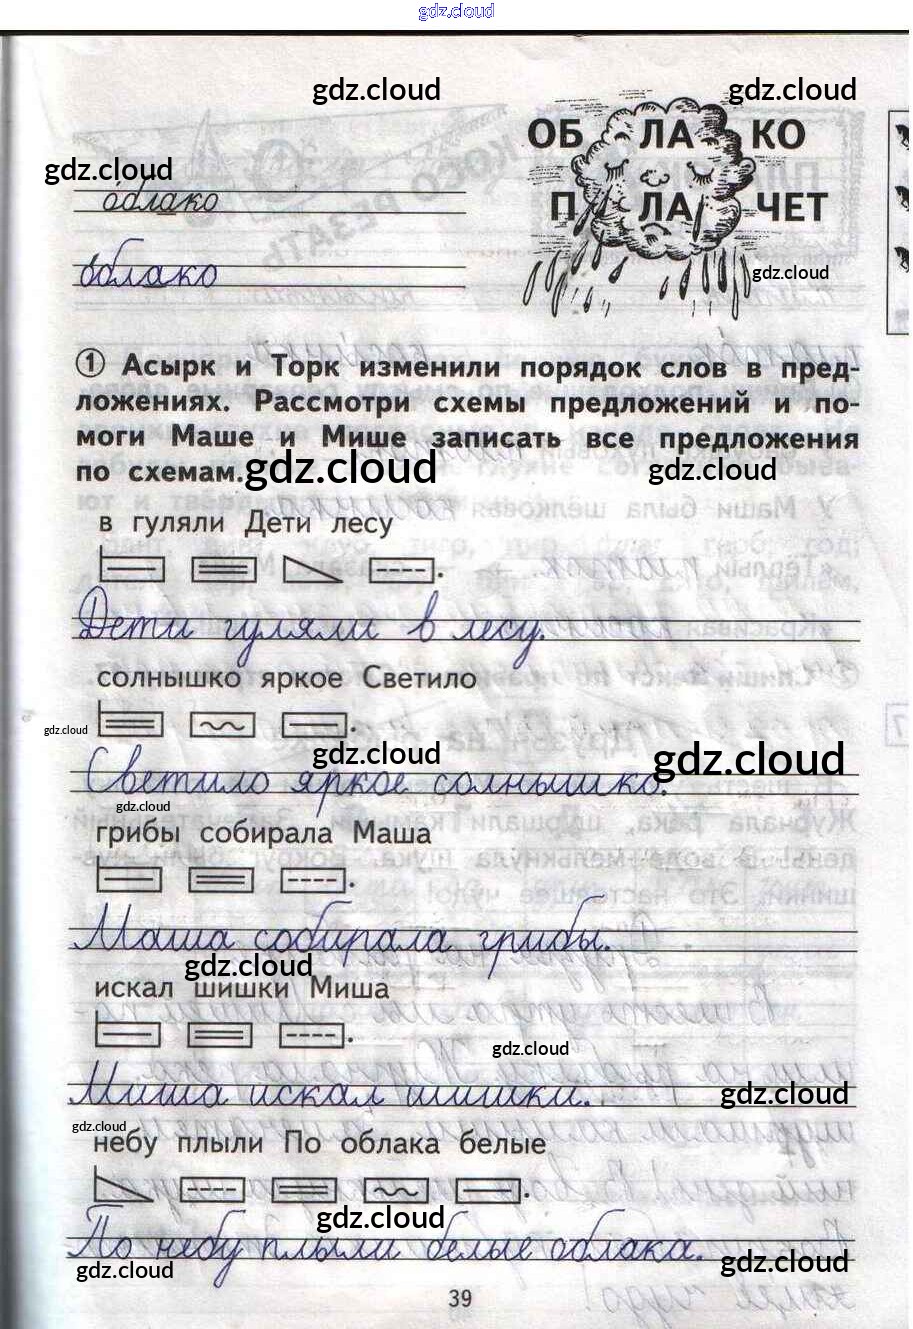 gdz.cloud
gdz.cloud
gdz.cloud
ОБ ЛА КО
gdz.cloud
облако
П ЛА ЧЕТ
облако
gdz.cloud
1 Асырк и Торк изменили порядок слов в пред-
ложениях. Рассмотри схемы предложений и по-
моги Маше и Мише записать все предложения
по схемам.
gdz.cloud
gdz.cloud
в гуляли Дети лесу
Дети гуляли в лесу.
солнышко яркое Светило
gdz.cloud
gdz.cloud
gdz.cloud
Светило яркое солнышко.
gdz.cloud
грибы собирала Маша
Маша собирала грибы.
gdz.cloud
искал шишки Миша
gdz.cloud
Миша искал шишки.
gdz.cloud
gdz.cloud
небу плыли По облака белые
gdz.cloud
По небу плыли белые облака.
gdz.cloud
gdz.cloud
39